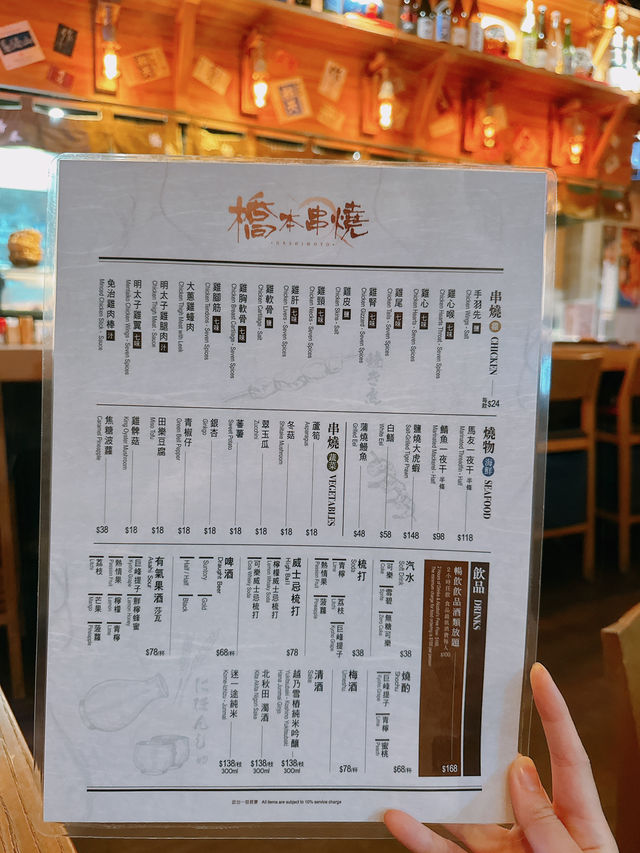 橋本串燒
·HASHIMOTO·
串燒 雞 CHICKEN 每款 $24
手羽先 鹽
Chicken Wings - Salt
雞心喉 七味
Chicken Hearts Throat - Seven Spices
雞心 七味
Chicken Hearts - Seven Spices
雞尾 七味
Chicken Tails - Seven Spices
雞腎 七味
Chicken Gizzard - Seven Spices
雞皮 鹽
Chicken Skins - Salt
雞頸 七味
Chicken Necks - Seven Spices
雞肝 七味
Chicken Livers - Seven Spices
雞軟骨 鹽
Chicken Cartilage - Salt
雞胸軟骨 七味
Chicken Breast Cartilage - Seven Spices
雞腳筋 七味
Chicken Tendons - Seven Spices
大蔥雞髀肉
Chicken Thigh Meat with Leek
明太子雞腿肉 汁
Chicken Thigh Meat - Sauce
明太子雞翼 七味
Mentaiko Chicken Wings - Seven Spices
免治雞肉棒 汁
Minced Chicken Stick - Sauce
燒物 海鮮 SEAFOOD
馬友一夜干 半條 $118
Marinated Threadfin - Half
鯖魚一夜干 半條 $98
Marinated Mackerel - Half
鹽燒大虎蝦 $148
Salt-Grilled Tiger Prawn
白鱔 $58
White Eel
蒲燒鰻魚 $48
Grilled Eel
串燒 蔬菜 VEGETABLES
蘆筍 $18
Asparagus
冬菇 $18
Shiitake Mushroom
翠玉瓜 $18
Zucchini
蕃薯 $18
Sweet Potato
銀杏 $18
Ginkgo
青椒仔 $18
Green Bell Pepper
田樂豆腐 $18
Miso Tofu
雞髀菇 $18
King Oyster Mushroom
焦糖波蘿 $38
Caramel Pineapple
飲品 DRINKS
暢飲飲品酒類放題 $168
汽水 $38
Soft Drink
可樂 雪碧 無糖可樂
Coke Sprite Zero Coke
梳打 $38
Soda
青檸 荔枝 巨峰提子
Lime Lychee Kyoho Grape
熱情果 菠蘿
Passion Fruit Pineapple
威士忌梳打 $78
High Ball
檸檬威士忌梳打
Lemon Whisky Soda
可樂威士忌梳打
Cola Whisky Soda
啤酒 $68/杯
Draught Beer
Suntory Gold
Black
Half / Half
有氣果酒 莎瓦 $78/杯
Asahi Sour
巨峰提子 鮮檸蜂蜜
Kyoho Grape Lemon Honey
熱情果 檸檬 青檸
Passion Fruit Lemon Lime
荔枝 芒果 菠蘿
Lychee Mango Pineapple
燒酌 $68/杯
Shochu
巨峰提子 青檸 蜜桃
Kyoho Grape Lime Peach
梅酒 $78/杯
Umeshu
清酒
Sake
越乃雪椿純米吟釀 $138/枝 300ml
北秋田 濁酒 $138/枝 300ml
Kita Akita Nigori Sake
迷一途純米 $138/枝 300ml
にほんしゅ
設加一服務費 All items are subject to 10% service charge